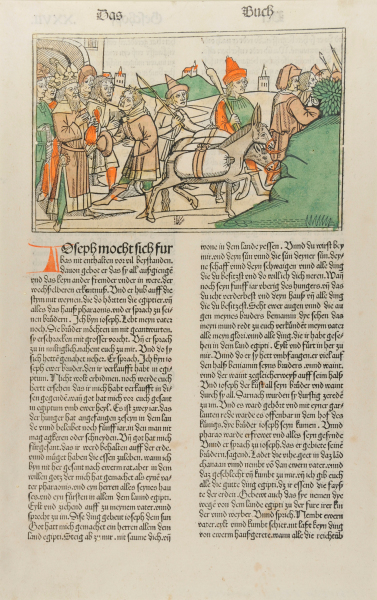 Das Buch
Joseph mocht sich fur
bas nit enthalten vor vil beystanden.
davon gebot er das sy all außgiengē
und das keyn ander frembder under in were. der
wechselichenn erkantnuß. Und er hůb auff die
stym mit weynen. die do hőrten die egiptier. vñ
alles das hauß pharaonis. und er sprach zu sey
nen brüdern. Ich byn ioseph. Lebt meyn vater
noch. Die brüder mochten im nit geantwurten.
sy erschracken mit grosser vorcht. Uñ er sprach
zu in milligklich. nahent euch zu mir. Und do sy
sich hetten genahet nehet. Er sprach. Ich byn io
seph ewer bruder. den ir verkaufft habt in egi-
ptum. Nicht wőlt erschrecken. noch werde euch
hert ersehen das ir mich habt verkaufft in di-
sen gegendē. wañ got hat mich vor euch gesant
in egiptum umb ewer heyl. Es ist zwey iar. das
der hunger hat angefangen zeseyn in dem lan
de. und beleibet noch fünff iar. in den man nit
mag ackeren oder schneyden. Uñ got hat mich
fürgesant. das ir werd behalten auff der erde.
und müget haben die essen zuleben. wann ich
byn nit her gesant nach ewerm rat. aber in dem
willen gotz der mich hat gemachet als eynē va-
ter pharaonis. und eyn herren alles seynes hau
ses. und eyn fürsten in allem dem land egipti.
Eylt und ziehend auff zu meynem vater. und
sprecht zu im. Dise ding gebeut ioseph dein sun
Got hatt mich gemachet ein herren allem dem
land egipti. Steig ab zu mir. nit saume dich. vñ
wone in dem lande yessen. Unnd du wirst bey
mir. und deyn sün unnd die sün deyner sün. dey
ne schaff unnd deyn schweiger unnd alle ding
die du besitzest und do will ich dich neren. Wañ
noch seyn fünff iar überig des hungers. vñ das
du icht verderbest und deyn hauß vñ alle ding
die du besitzest. Secht ewer augen unnd die au-
gen meynes bruders beniamin dye sehen das
meyn mund redt zu euch verkündet meym vater
alle meyn glori. unnd alle ding. die ir habt gese-
hen in dem land egipti. Eylt und fürt in her zu
mir. Unnd do er sy hett umbfangen. er viel auf
den halß beniamin seyns bruders. unnd waint.
unnd der waint zegleicherweyß auff seim halß
Und ioseph der küst all seyn brüder und waint
durch sy all. Darnach wurden sy dürstig zeredē
zu im. Und es ward gehőrt und mit eyner gar
lauten rede ward es offenbar in dem hof des
künigs. dye brüder ioseph seyn kumen. Unnd
pharao ward erfrewet und alles seyn gesinde
Unnd er sprach zu ioseph. das er gebiete seinē
brüdern. sagend. Ladet die vihe. geet in daz lād
chanaan unnd nembt vō dan ewern vater. unnd
daz geschlecht uñ kumbt zu mir. vñ ich gib euch
alle die gute ding egipti. dz ir essend die fayst-
te der erden. Gebewt auch das sye nemen dye
wege von dem lande egipti zu der fure irer kin
der unnd weyber. Unnd sprich. Nembt ewern
vater. eylt unnd kumbt schier. und laßt keyn ding
von ewerm haußgerete. wann alle die reichtüb